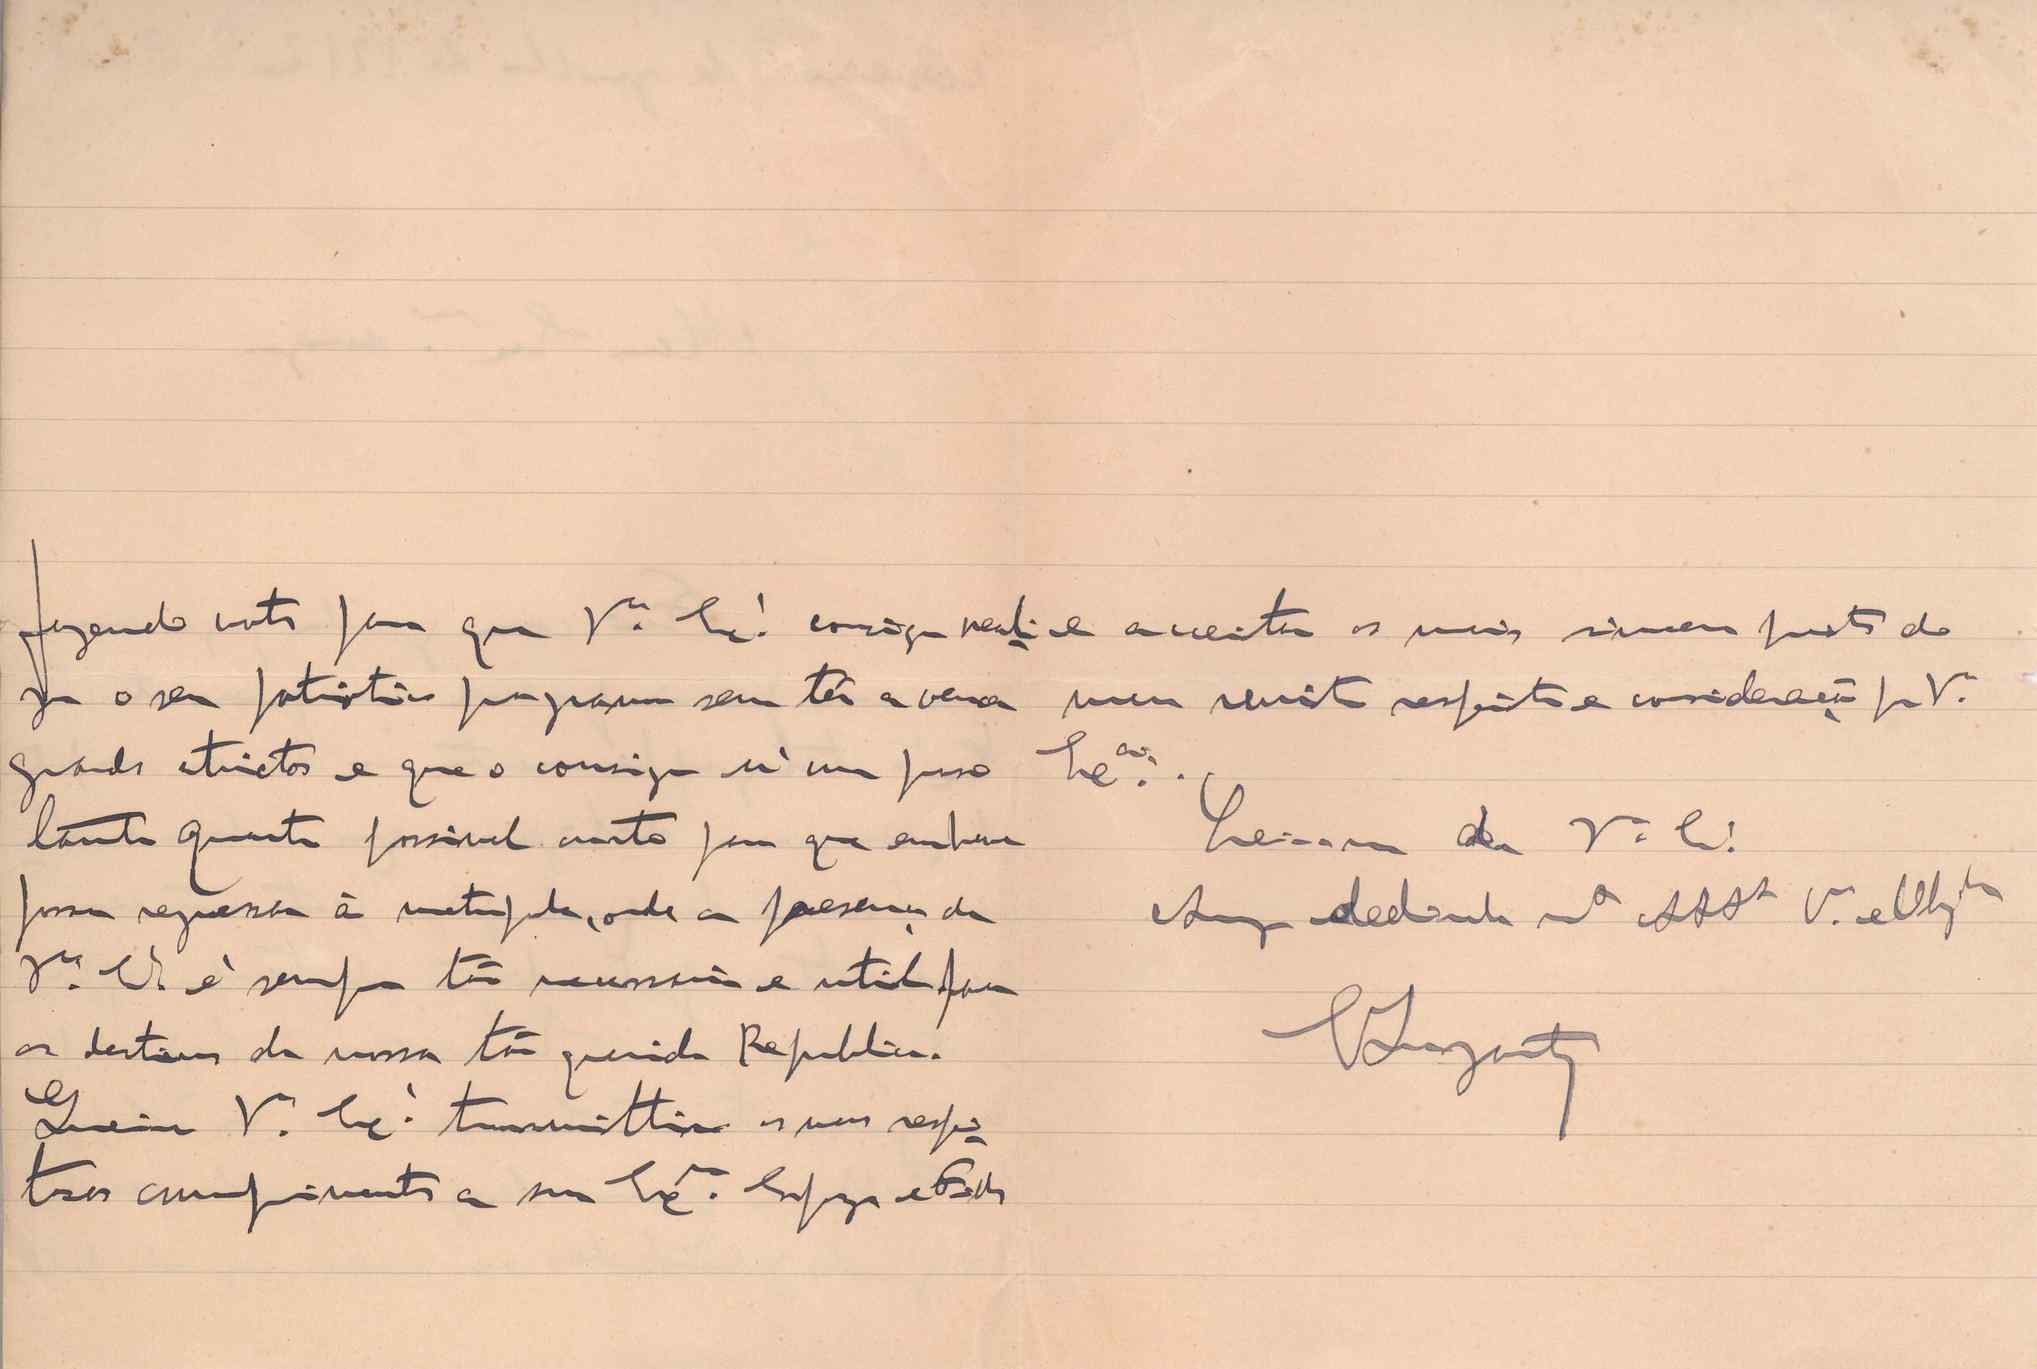 fazendo votos para que V.ª Ex.ª consiga reali-
zar o seu patriotico programa sem ter a vencer
grandes attrictos e que o consiga n'um praso
tanto quanto possivel curto para que em breve
possa regressar á metropole, onde a presença de
V.ª Ex.ª é sempre tão necessaria e util para
os destinos da nossa tão querida Republica.
Queira V.ª Ex.ª transmittir os meus respei-
tosos cumprimentos a sua Ex.ma Esposa e
e acceitar os mais sinceros protestos do
meu muito respeito e consideração por V.ª
Ex.cia.
Creia-me de V.ª Ex.ª
Amigo dedicado m.to V.or e Obg.do